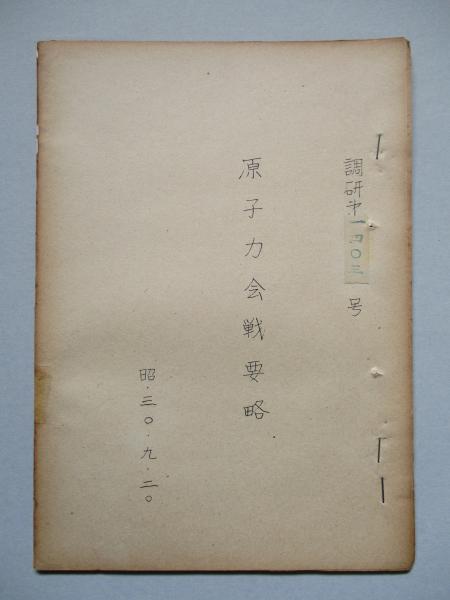 調研第一四〇三号
原子力会戦要略
昭・三〇・九・二〇